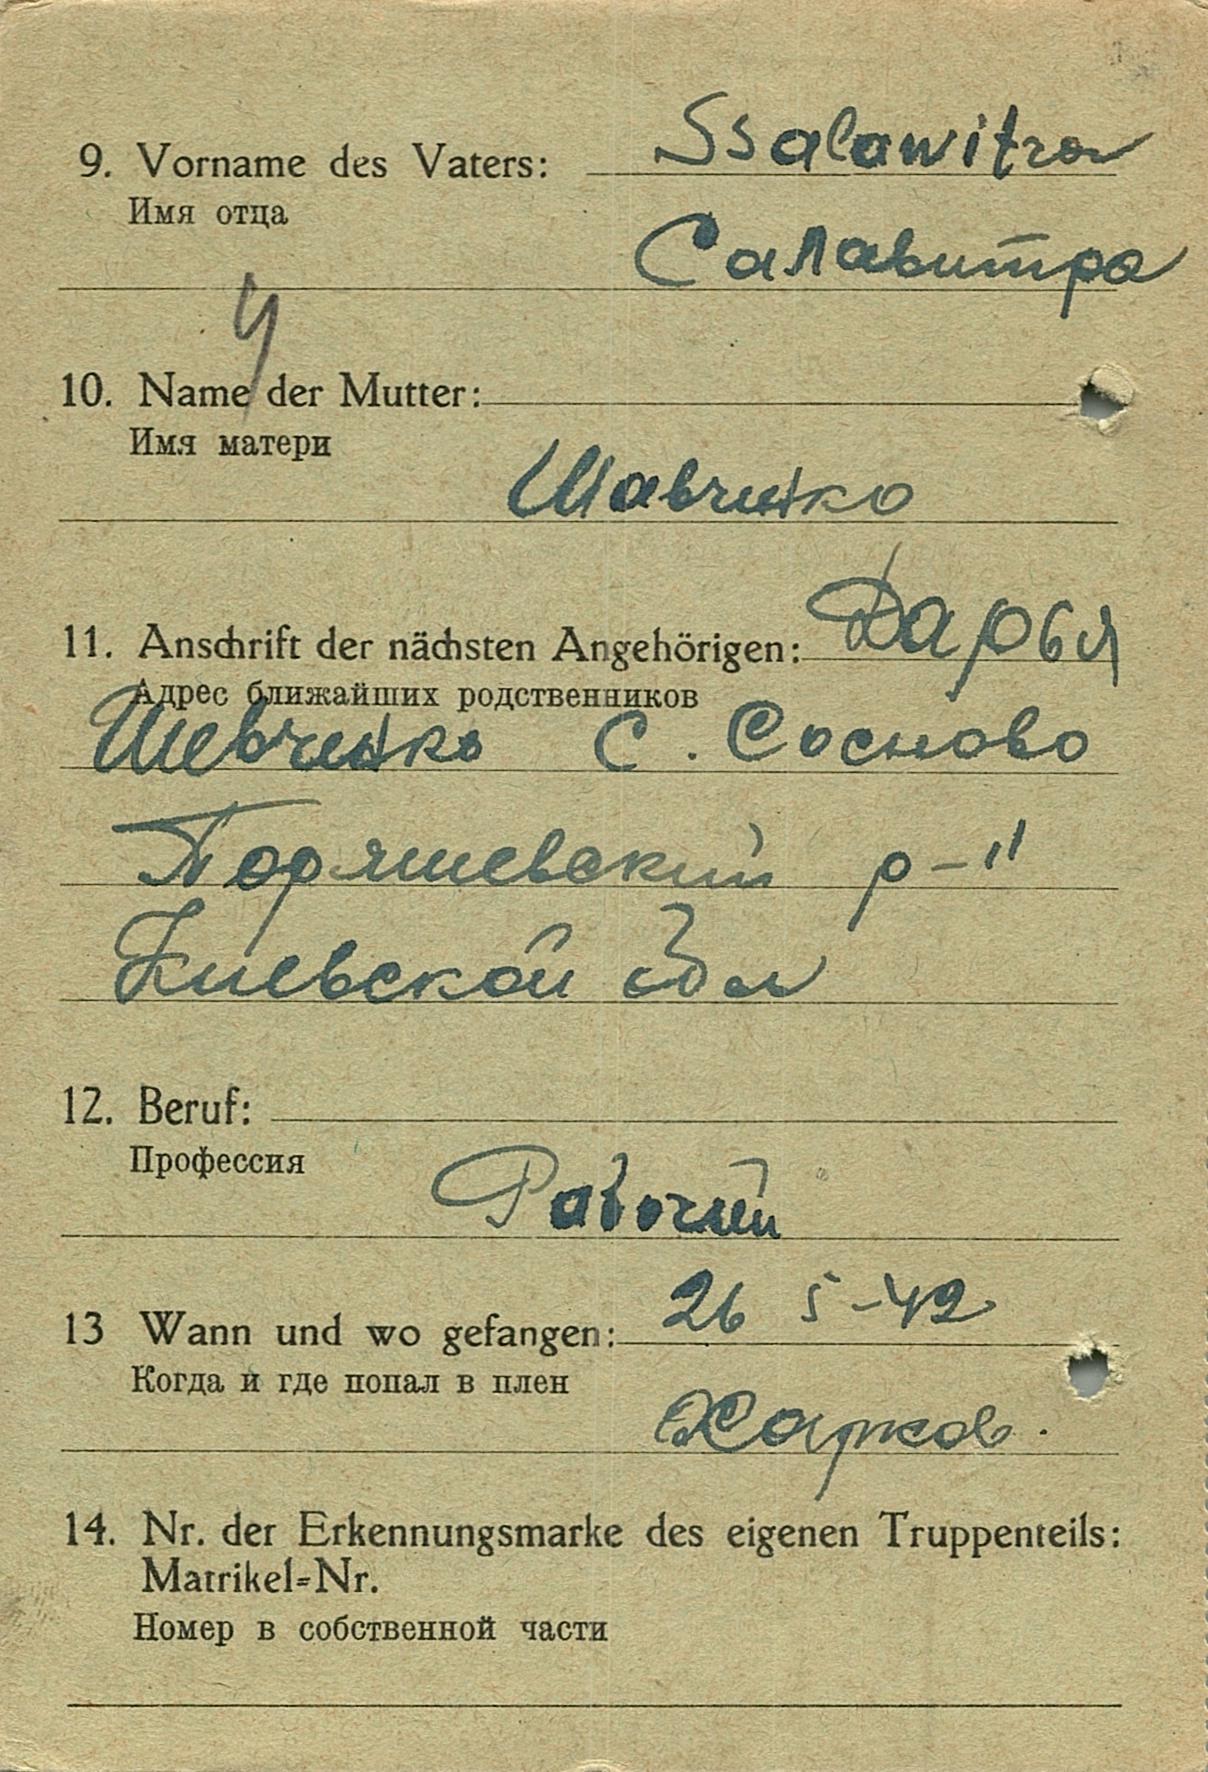 9. Vorname des Vaters: Ssalawitra
Имя отца
Салавитра
4
10. Name der Mutter:
Имя матери
Шавченко
11. Anschrift der nächsten Angehörigen: Дарья
Адрес ближайших родственников
Шевченко С. Сосново
р-н
Киевской обл
12. Beruf:
Профессия
Рабочий
13 Wann und wo gefangen: 26 5-42
Когда и где попал в плен
Харков.
14. Nr. der Erkennungsmarke des eigenen Truppenteils:
Matrikel=Nr.
Номер в собственной части